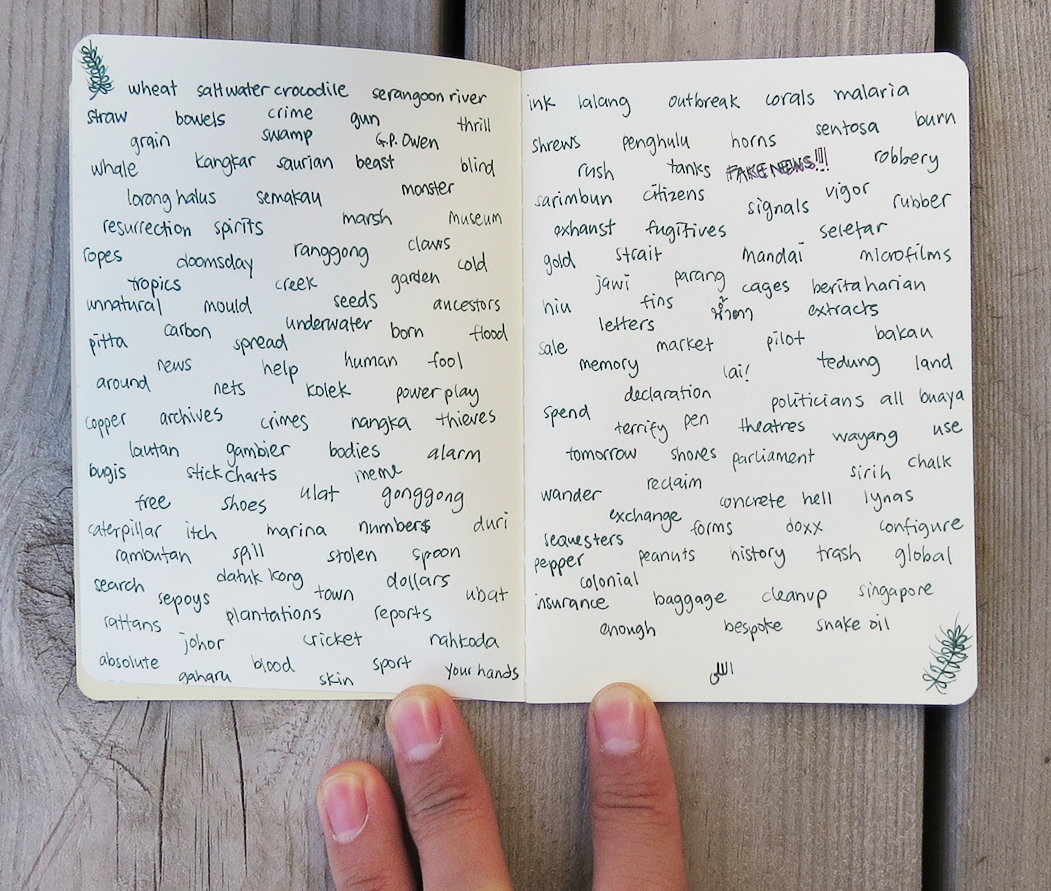 wheat saltwater crocodile serangoon river
straw bowels crime gun thrill
grain swamp G.P. Owen
whale kangkar saurian beast blind
lorong halus semakau monster
resurrection spirits marsh museum
ropes doomsday ranggong claws cold
tropics creek garden
unnatural mould seeds ancestors
pitta carbon spread underwater born flood
news help human fool
around nets kolek powerplay
copper archives crimes nangka thieves
lautan gambier bodies alarm
bugis stick charts meme
free shoes ulat gonggong
caterpillar itch marina number$ duri
rambutan spill stolen spoon
search datuk kong dollars
sepoys town ubat
rattans plantations reports
johor cricket nahkoda
absolute blood sport your hands
gaharu skin
ink lalang outbreak corals malaria
shrews penghulu horns sentosa burn
rush tanks FAKE NEWS!!! robbery
sarimbun citizens signals vigor rubber
exhaust fugitives seletar
gold strait mandai microfilms
jawi parang cages berita harian
hiu fins น้ำตา extracts
letters
sale market pilot bakau
memory lai! tedung land
declaration politicians all buaya
spend terrify pen theatres wayang use
tomorrow shores parliament sirih chalk
wander reclaim concrete hell lynas
exchange forms doxx configure
sequesters
pepper peanuts history trash global
colonial
insurance baggage cleanup singapore
enough bespoke snake oil